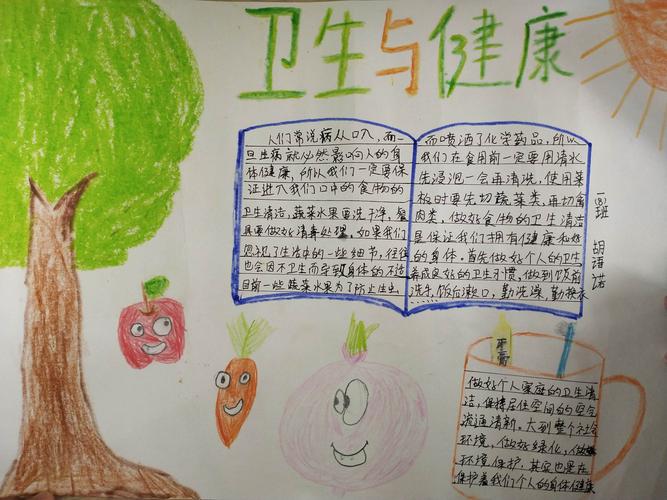 卫生与健康
人们常说病从口入，而一
旦生病就必然影响人的身
体健康，所以我们一定要保
证进入我们口中的食物的
卫生清洁，蔬菜水果要洗干净，餐
具要做好消毒处理。如果我们
忽视了生活中的一些细节，往往
也会因不卫生而导致身体的不适
目前一些蔬菜水果为了防止生虫
而喷洒了化学药品，所以
我们在食用前一定要用清水
先浸泡一会再清洗，使用菜
板时要先切蔬菜类，再切禽
肉类，做好食物的卫生清洁
是保证我们拥有健康和好
的身体。首先做好个人的卫生
养成良好的卫生习惯，做到饭前
洗手饭后漱口，勤洗澡，勤换衣
一(8)班 胡语诺
牙膏
做好个人家庭的卫生清
洁，保持居住空间的空气
流通清新。大到整个社会
环境，做好绿化，做好
环境保护，其实也是在
保护着我们个人的身体健康